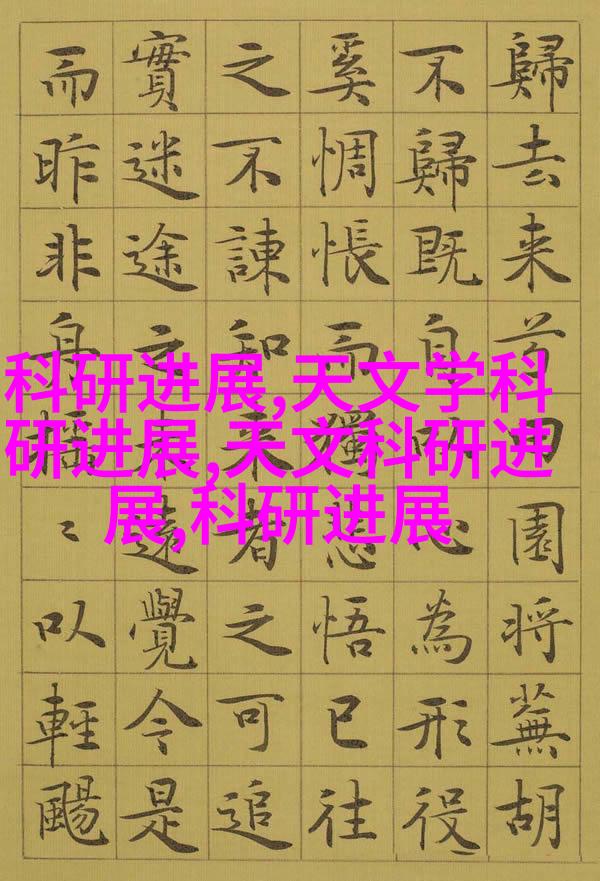 科研进展,天文学科
研进展,天文科研进
展,科研进展
歸去来田園将蕪胡
不歸既自以心為形役
奚惆悵而獨悲悟已往
之不諫知来者之可追
實迷途未遠覺今是
而昨非舟摇〻以輕颺